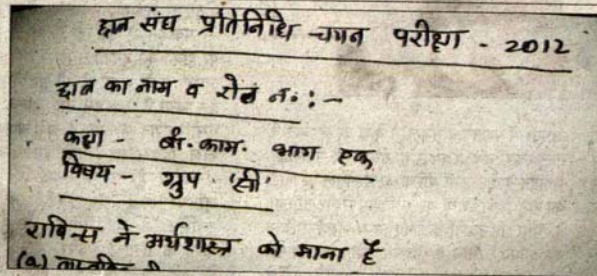 छात्र संघ प्रतिनिधि चयन परीक्षा - 2012
छात्र का नाम व रोल नं. : -
कक्षा - बी. काम. भाग एक
विषय - ग्रुप 'सी'
राबिन्स ने अर्थशास्त्र को माना है
(a) वास्तविक